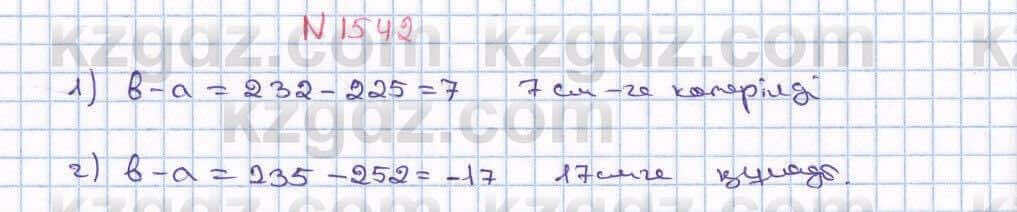 N 1542
kzgdz.com kzgdz.com
1) в-а = 232 - 225 = 7 7 см-ге көтерілді
kzgdz.com
2) в-а = 235 - 252 = -17 17 смге құлады.